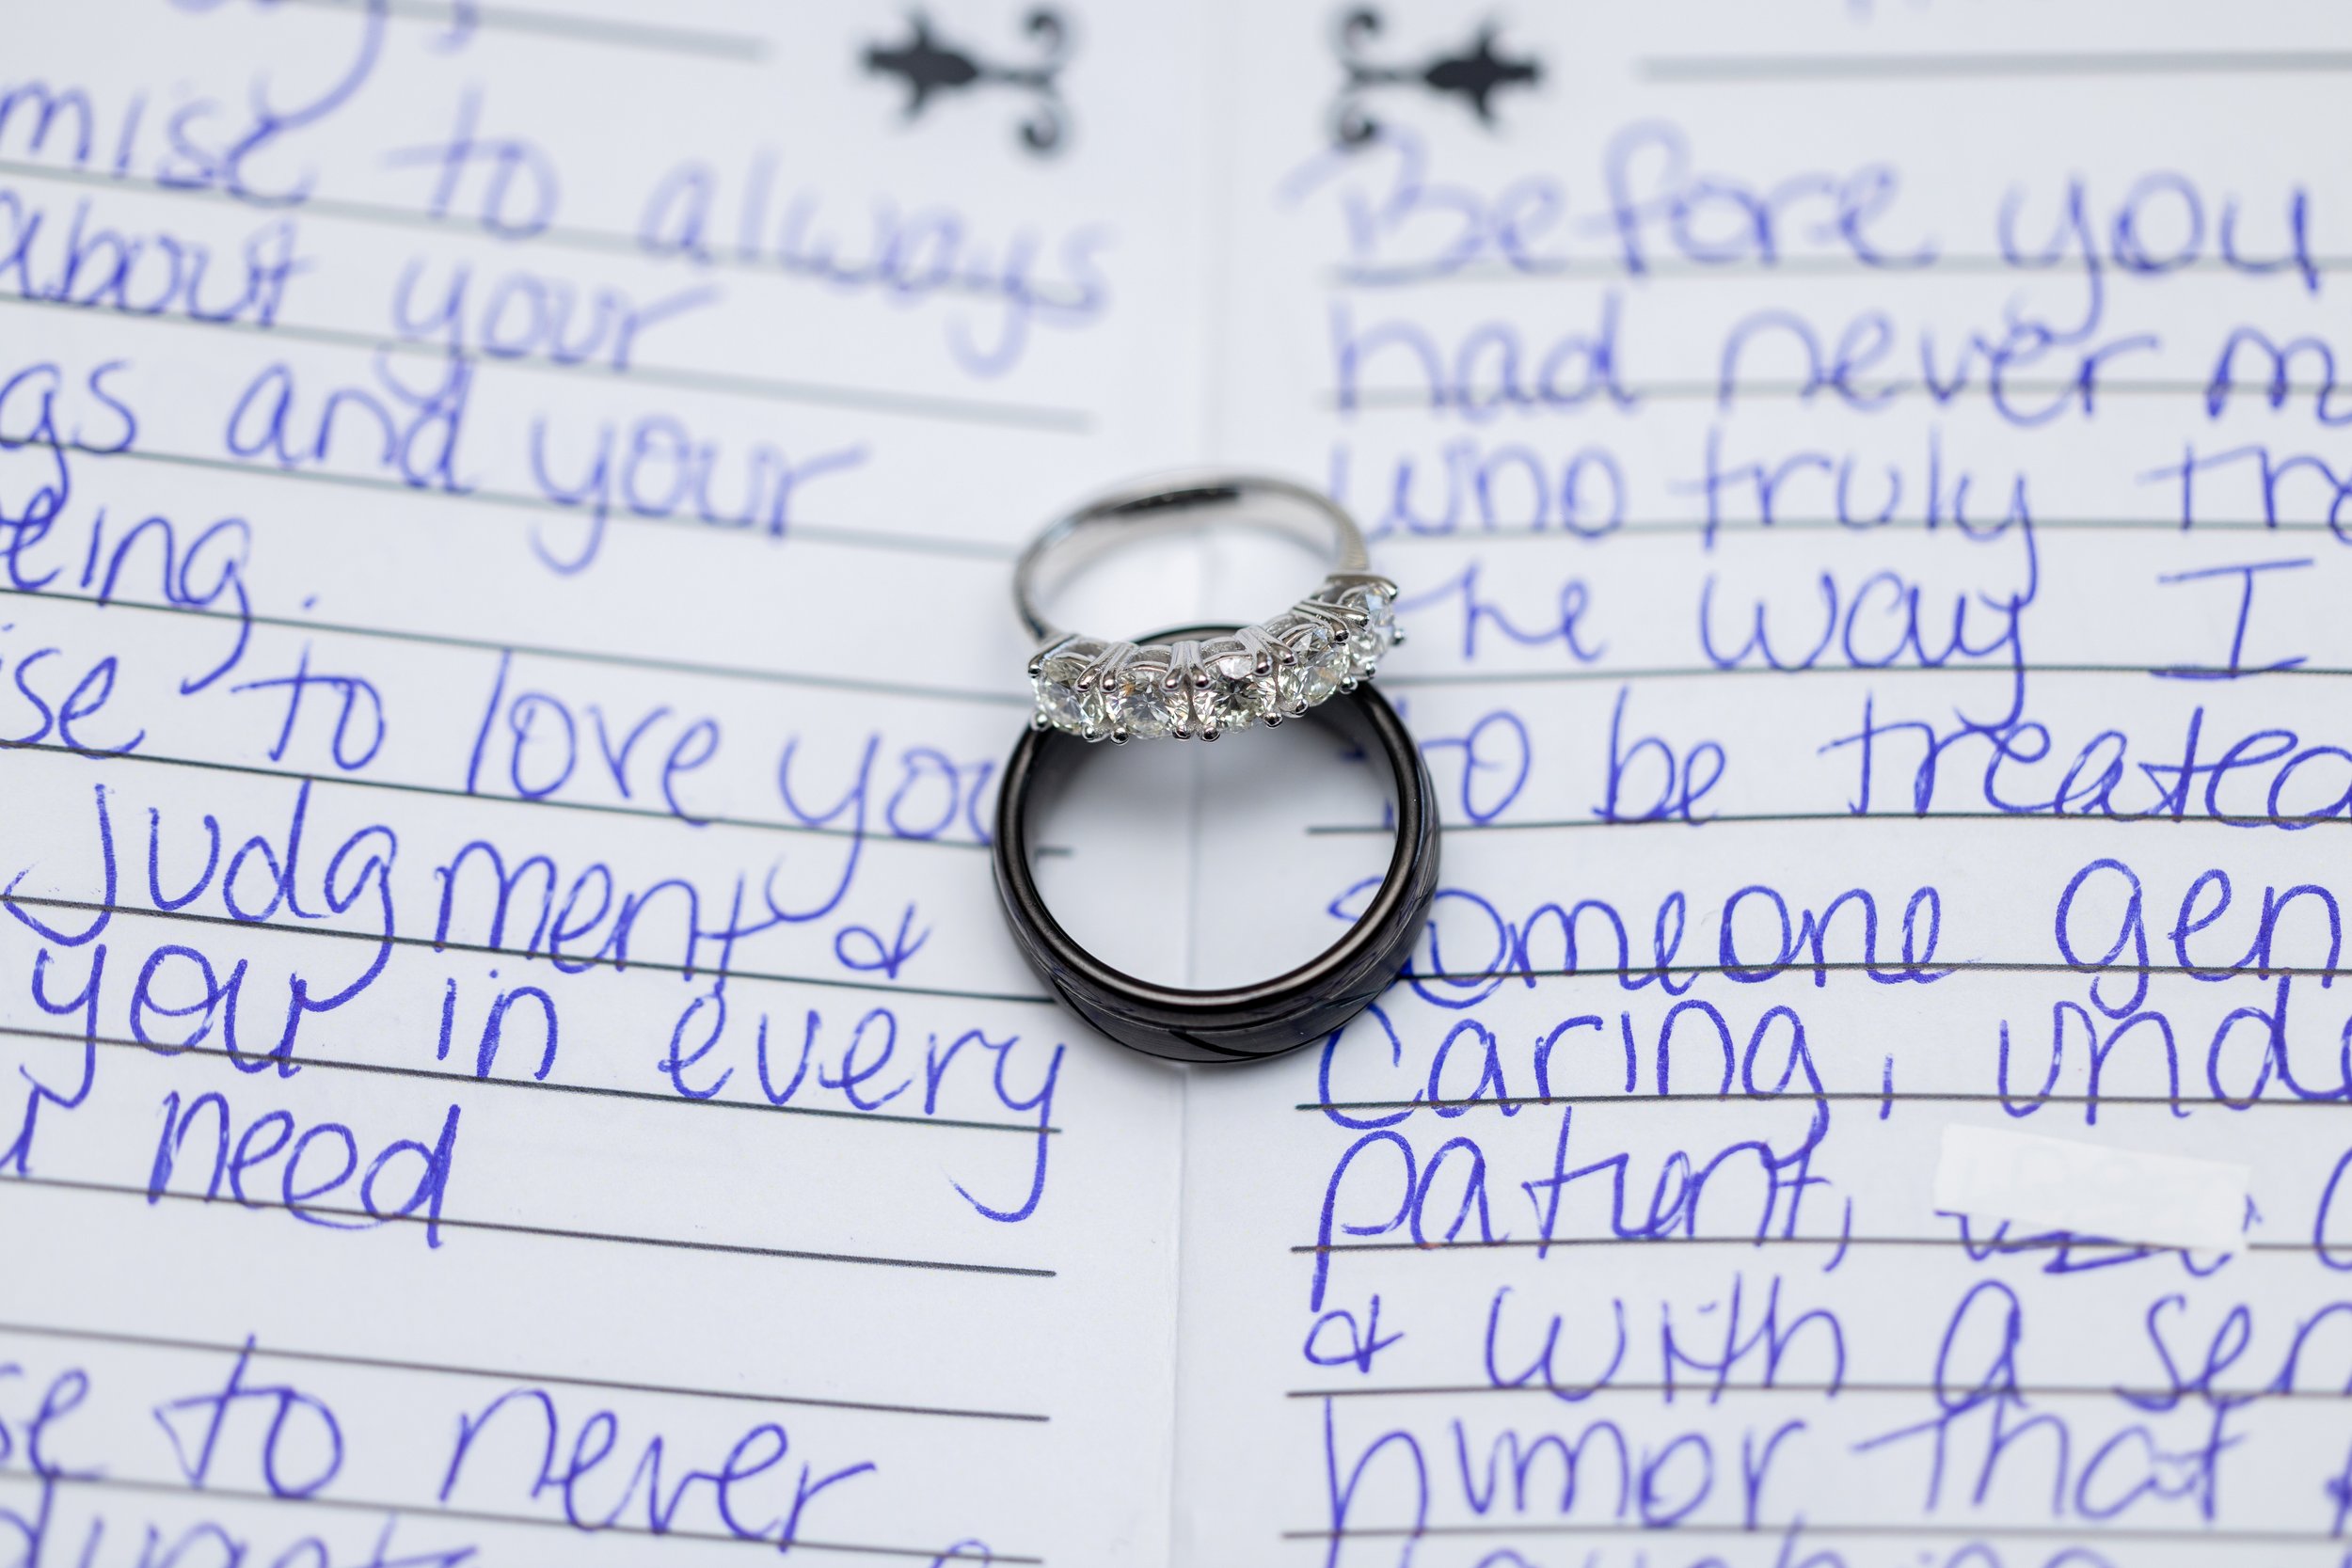 mise to always
about your
and your
eing.
ise to love you
Judgment &
you in every
need
se to never
Before you
had never m
who truly tr
the way I
to be treated
someone gen
Caring, unde
patient,
& with a sen
humor that